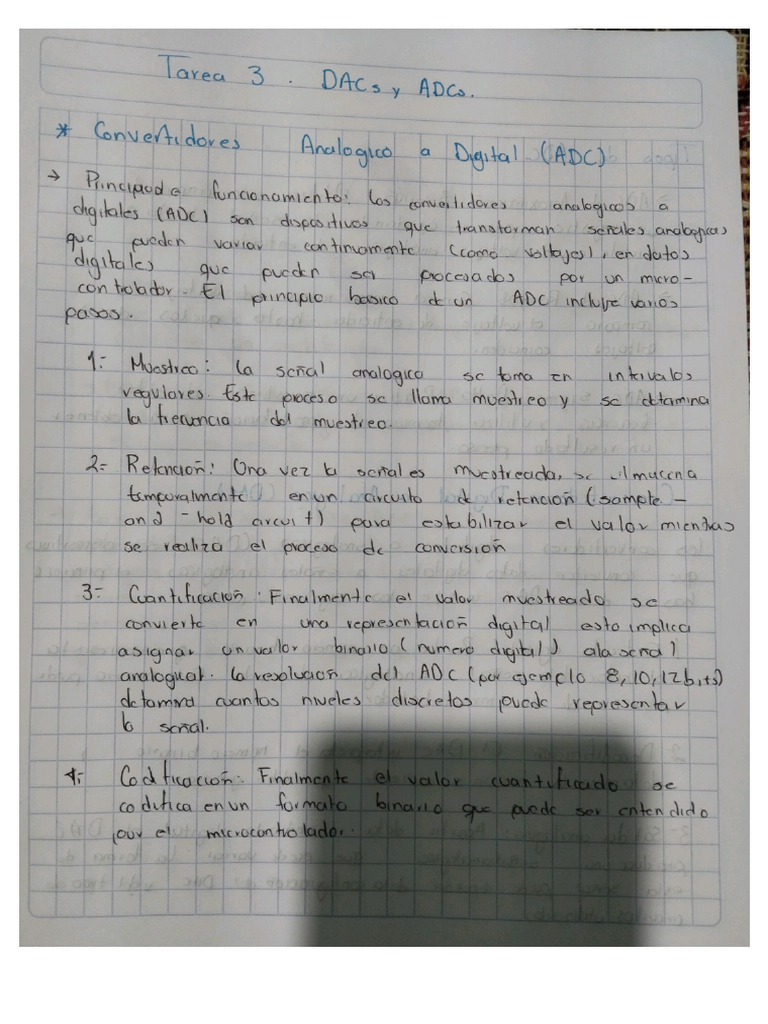 Tarea 3 . DACs y ADCs.
* Convertidores Analogico a Digital (ADC)
→ Principio de funcionamiento: Los convertidores analogicos a
digitales (ADC) son dispositivos que transforman señales analogicas
que pueden variar continuamente (como voltajes), en datos
digitales que pueden ser procesados por un micro-
controlador. El principio basico de un ADC incluye varios
pasos.
1.- Muestreo: La señal analogica se toma en intervalos
regulares. Este proceso se llama muestreo y se determina
la frecuencia del muestreo.
2.- Retención: Una vez la señal es muestreada, se almacena
temporalmente en un circuito de retención (sample-
and-hold circuit) para estabilizar el valor mientras
se realiza el proceso de conversión
3.- Cuantificación: Finalmente el valor muestreado se
convierte en una representación digital esto implica
asignar un valor binario (numero digital) a la señal
analogica. La resolución del ADC (por ejemplo 8, 10, 12 bits)
determina cuantos niveles discretos puede representar
la señal.
4.- Codificación: Finalmente el valor cuantificado se
codifica en un formato binario que puede ser entendido
por el microcontrolador.